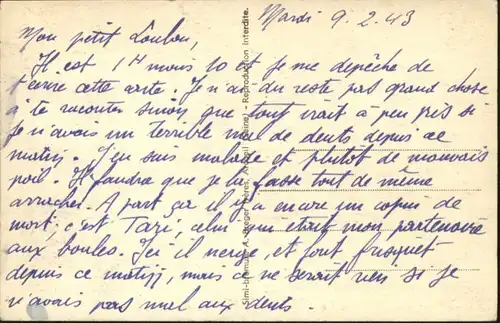 Mardi 9.2.43
Mon petit Loulou,
Il est 14 moins 10 et je me dépêche de
t'écrire cette carte. Je n'ai du reste pas grand chose
à te raconter sinon que tout irait à peu près si
je n'avais un terrible mal de dents depuis ce
matin. J'en suis malade et plutôt de mauvais
poil. Il faudra que je la fasse tout de même
arracher. A part ça il y a encore un copain de
mort, c'est Tari, celui qui était mon partenaire
aux boules. Ici il neige, et fait frisquet
depuis ce matin, mais ce ne serait rien si je
n'avais pas mal aux dents.
Reproduction interdite.